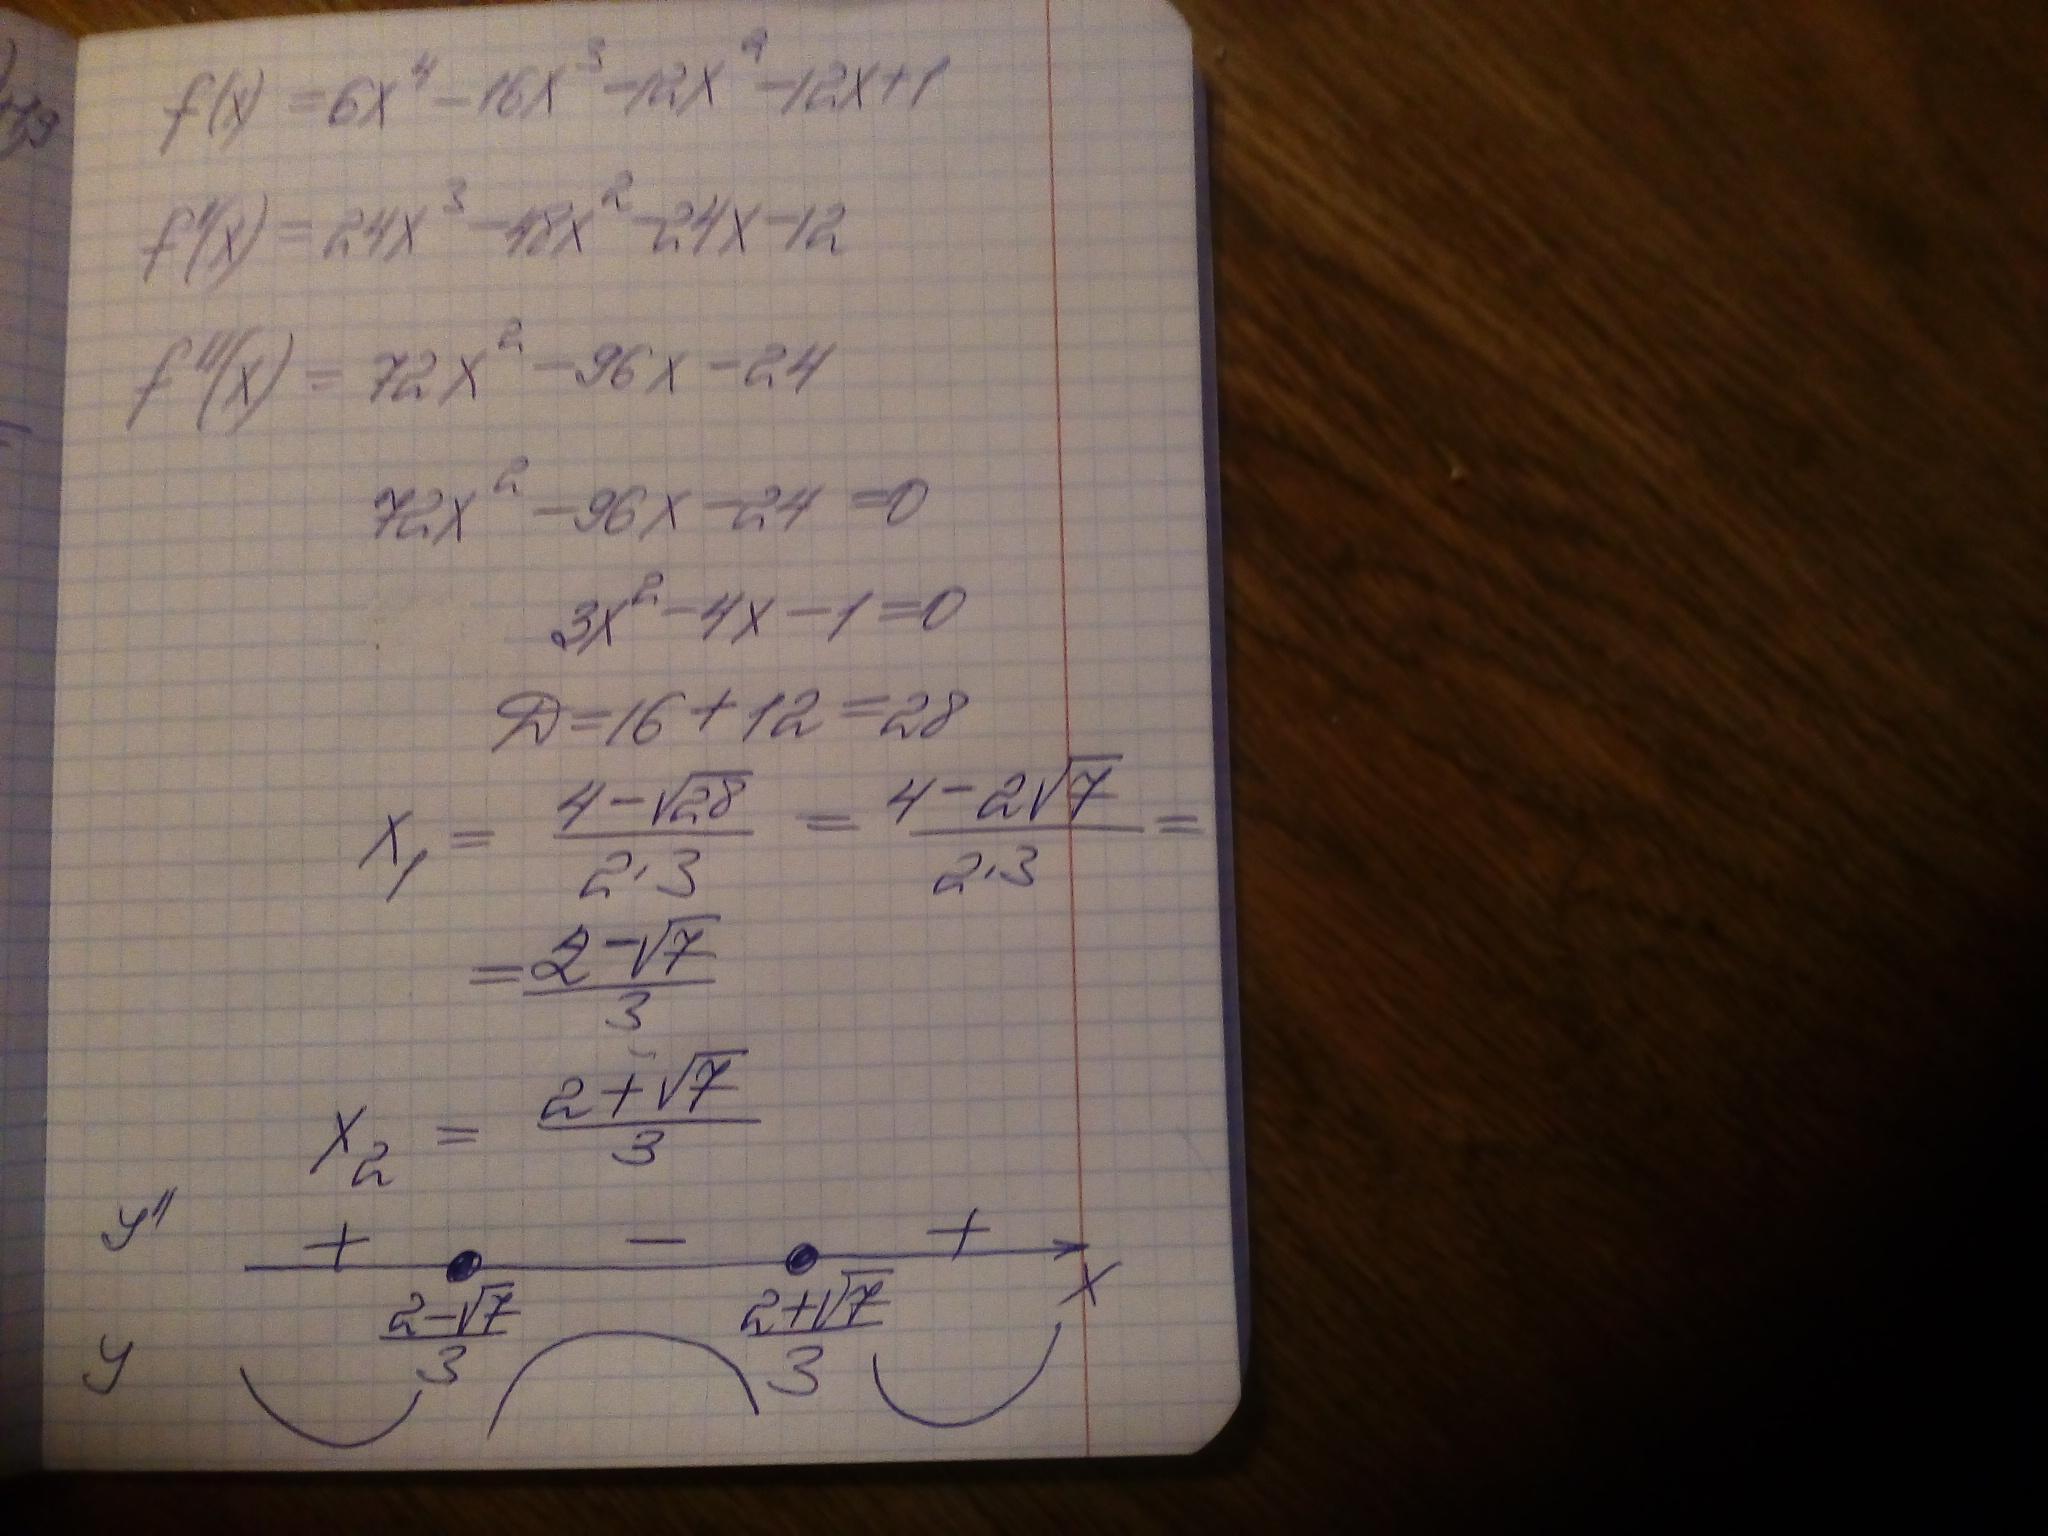 f(x) = 6x⁴ - 16x³ - 12x² - 12x + 1
f'(x) = 24x³ - 48x² - 24x - 12
f''(x) = 72x² - 96x - 24
72x² - 96x - 24 = 0
3x² - 4x - 1 = 0
D = 16 + 12 = 28
x₁ = (4 - √28)/(2·3) = (4 - 2√7)/(2·3) =
= (2 - √7)/3
x₂ = (2 + √7)/3
y'' + - +
(2 - √7)/3 (2 + √7)/3 x
y